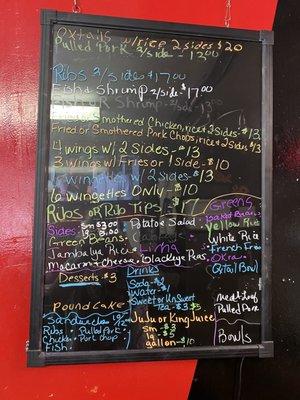 Oxtails w/rice 2 sides $20
Pulled Pork 2/side - 13.00
Ribs 2/side $17.00
Fish & Shrimp 2/side
Fried or Smothered Chicken, rice & 2 Sides - $13
Fried or Smothered Pork Chops, rice & 2 sides $13
4 wings w/ 2 Sides - 13
3 wings w/ Fries or 1 side - $10
6 wingettes w/ 2 sides - $13
6 wingettes ONLY - $10
Ribs OR Rib Tips - $17
Sides: sm $3.00
Potato Salad
Green Beans
Jambalya Rice
Lima
Macaroni & cheese Blackeye Peas
Greens
Yellow Rice
White Rice
French Fries
OKra
Oxtail Bowl
Desserts - $3
Pound Cake
Drinks
Soda - $2
Water - $1
Sweet or UnSweet
Tea - $3 $5
JuJu or King Juice
sm - $3
lg - $5
gallon - $10
Sandwiches
Ribs · Pulled Pork
Chicken · Pork Chop
Fish
Meat Loaf
Pulled Pork
Bowls